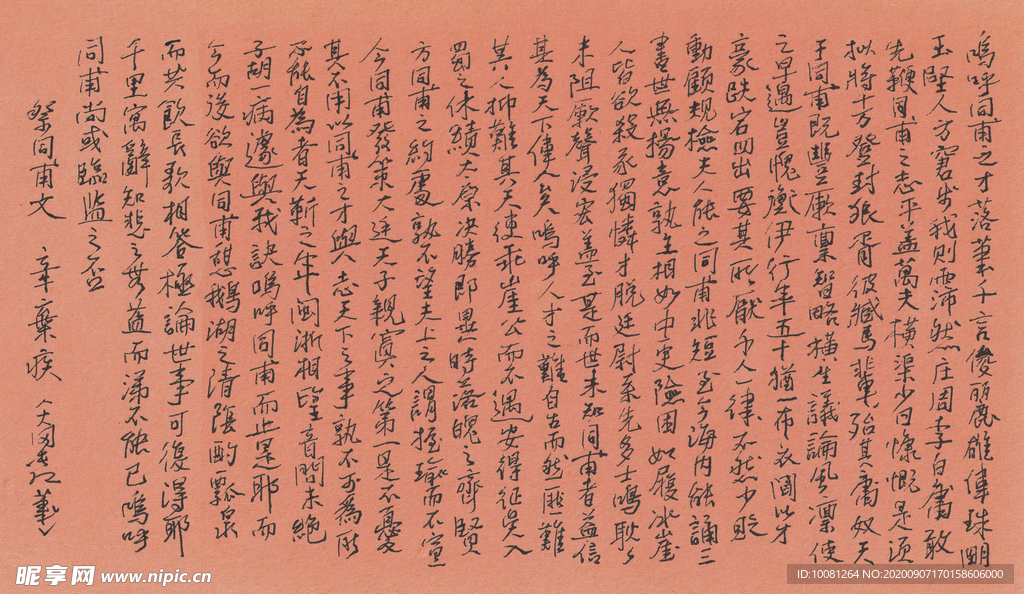 嗚呼同甫之才落筆千言俊麗雄偉珠明
玉堅人方窘步我則霈然庄周李白庸敢
先鞭同甫之志平蓋萬夫橫渠少日慷慨是須
拟將十万登封狼胥彼臧馬輩殆其庸奴天
于同甫既豐厥稟智略橫生議論風凜使
之早遇豈愧衡伊行年五十猶一布衣間以才
豪跌宕四出要其所厭千人一律不然少貶
動顧規檢夫人能之同甫非短至今海內能誦三
書世無揚意孰主相如中更險困如履冰崖
人皆欲殺我獨憐才脫廷尉系先多士鳴耿々
未阻厥聲浸宏蓋至是而世未知同甫者益信
其為天下偉人矣嗚呼人才之難自古而然匪難
其人抑難其天使乖崖公而不遇安得征吳入
蜀之休績太原決勝即異時落魄之齊賢
方同甫之約處孰不望夫上之人謂握瑜而不宣
今同甫發策大廷天子親寘之第一是不憂
其不用以同甫之才與志天下之事孰不可為所
不能自為者天靳之年閩浙相望音問未絕
子胡一病遽與我訣嗚呼同甫而止是耶而
今而後欲與同甫憩鵝湖之清陰酌瓢泉
而共飲長歌相答極論世事可復得耶
千里寓辭知悲之無益而涕不能已嗚呼
同甫尚或臨监之否
祭同甫文 辛棄疾
昵享网 www.nipic.cn
ID:10081264 NO:20200907170158606000